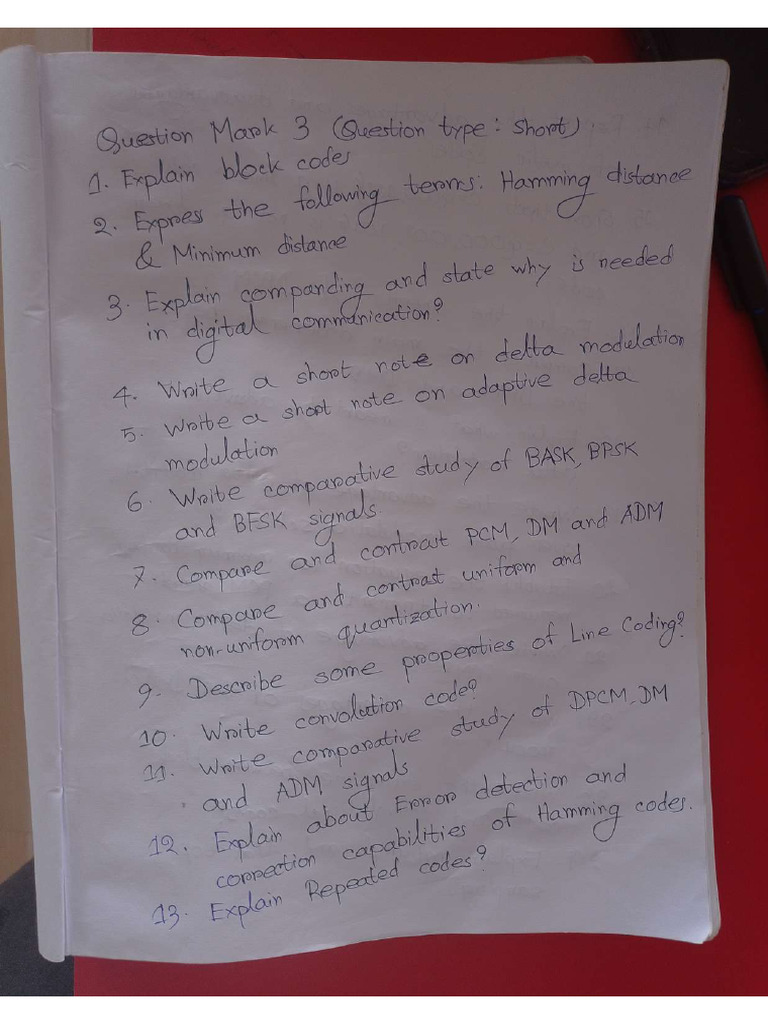 Question Mark 3 (Question type: Short).
1. Explain block codes
2. Express the following terms: Hamming distance
& Minimum distance
3. Explain companding and state why is needed
in digital communication?
4. Write a short note on delta modulation
5. Write a short note on adaptive delta
modulation
6. Write comparative study of BASK, BPSK
and BFSK signals.
7. Compare and contrast PCM, DM and ADM
8. Compare and contrast uniform and
non-uniform quantization.
9. Describe some properties of Line Coding?
10. Write convolution code?
11. Write comparative study of DPCM, DM
and ADM signals
12. Explain about Error detection and
correction capabilities of Hamming codes.
13. Explain Repeated codes?